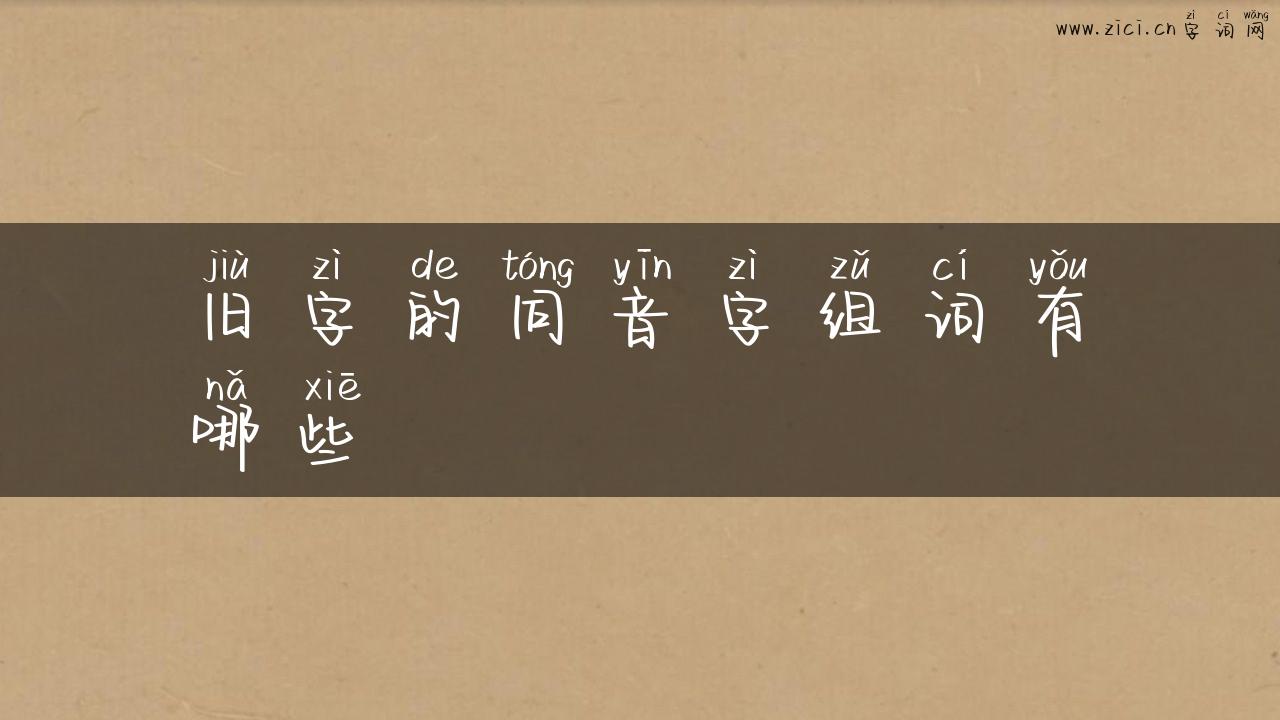 zì cí wǎng
www.zici.cn 字词网
jiù zì de tóng yīn zì zǔ cí yǒu
旧字的同音字组词有
nǎ xiē
哪些